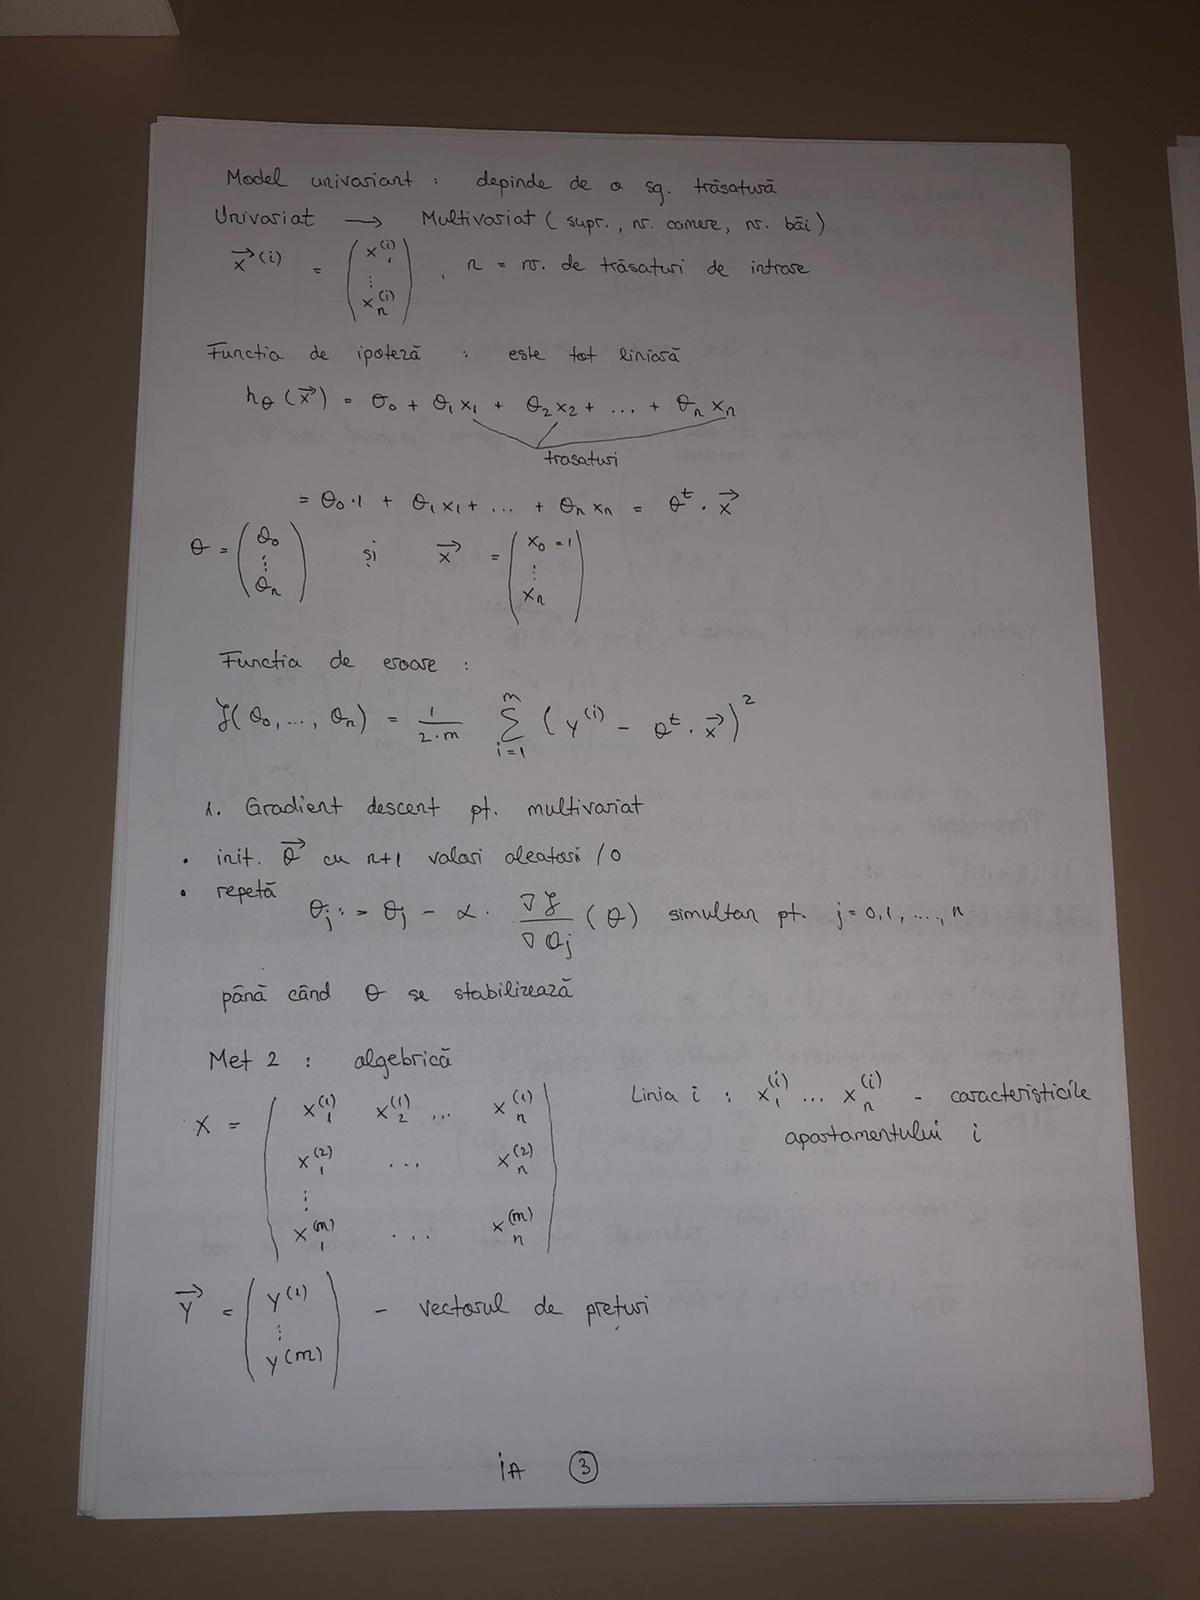 Model univariant : depinde de o sg. trăsatură
Univariat → Multivariat ( supr., nr. camere, nr. băi )
x⃗^(i) = ( x_1^(i) ⋮ x_n^(i) ) , n = nr. de trăsaturi de intrare
Functia de ipoteză : este tot liniară
h_θ ( x⃗ ) = θ_0 + θ_1 x_1 + θ_2 x_2 + ... + θ_n x_n
trasaturi
= θ_0 · 1 + θ_1 x_1 + ... + θ_n x_n = θ^t · x⃗
θ = ( θ_0 ⋮ θ_n ) și x⃗ = ( x_0 = 1 ⋮ x_n )
Functia de eroare :
J( θ_0, ..., θ_n ) = 1 / 2·m Σ_{i=1}^{m} ( y^(i) - θ^t · x⃗ )^2
1. Gradient descent pt. multivariat
• init. θ⃗ cu n+1 valori aleatorii / 0
• repetă
θ_j := θ_j - α · ∇J / ∇θ_j ( θ ) simultan pt. j = 0, 1, ...., n
până când θ se stabilizează
Met 2 : algebrică
X = ( x_1^(1) x_2^(1) ... x_n^(1)
x_1^(2) ... x_n^(2)
⋮
x_1^(m) ... x_n^(m) )
Linia i : x_1^(i) ... x_n^(i) - caracteristicile
apartamentului i
y⃗ = ( y^(1) ⋮ y^(m) ) - vectorul de prețuri
iA 3